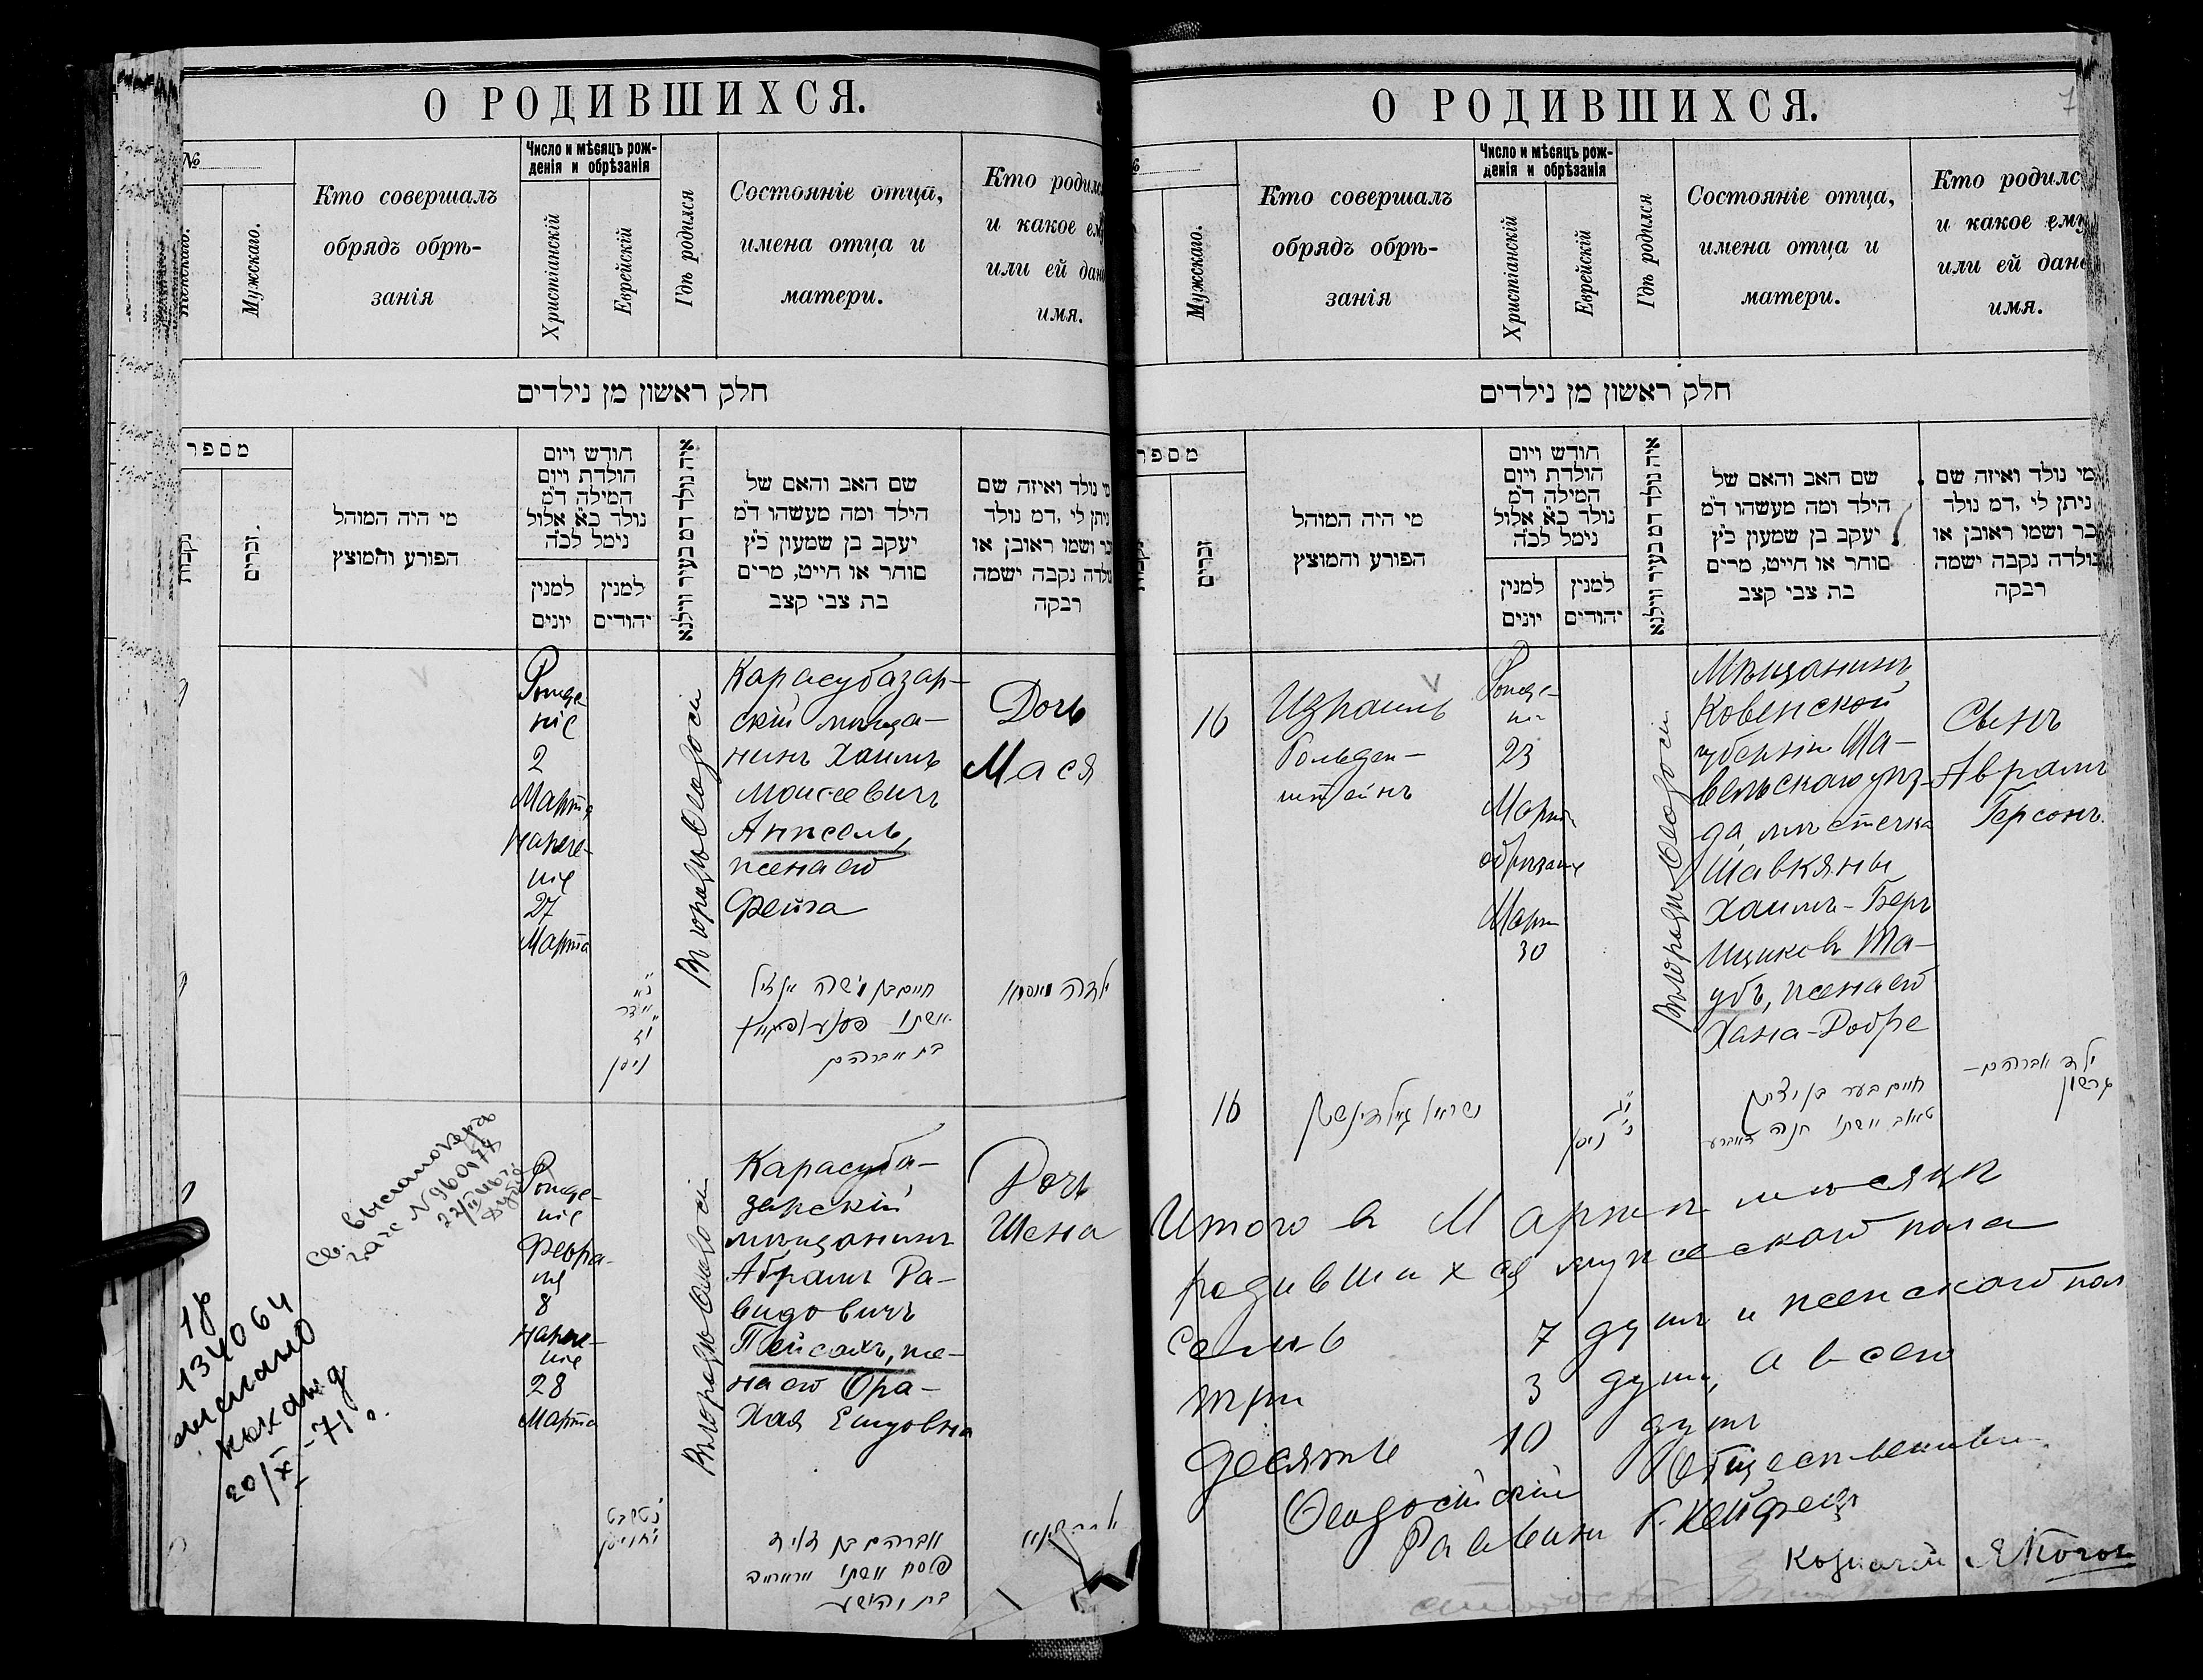 О РОДИВШИХСЯ.
№
Мужскаго.
Кто совершалъ
обрядъ обрѣ-
занія
Число и мѣсяцъ рож-
денія и обрѣзанія
Христіанскій
Еврейскій
Гдѣ родился
Состояніе отца,
имена отца и
матери.
Кто
и какое
или ей
имя.
חלק ראשון מן נילדים
מספר
נקבות
זכרים.
מי היה המוהל
הפורע והמוצץ
חודש ויום
הולדת ויום
המילה ד״מ
נולד כ״א אלול
נימל לכ״ה
למנין
יונים
למנין
יהודים
איה נולד דמ בעיר ווילנא
שם האב והאם של
הילד ומה מעשהו ד״מ
יעקב בן שמעון כ״ץ
סוחר או חייט, מרים
בת צבי קצב
מי נולד ואיזה שם
ניתן לי, דמ נולד
ושמו ראובן או
נולדה נקבה ישמה
רבקה
Рожде
ніе
2
Марта
нарече-
ніе
27
Марта
Въ городѣ Ѳеодосіи
Карасубазар-
скій мѣща-
нинъ Хаимъ
Моисеевичъ
Анжель,
жена его
Фейга
Дочь
Мася
ניסן
בת אברהם
св. выслано
22/IX
18
134064
выслано
20/X-71 г.
Рожде-
ніе
Февра-
ля
8
нарече-
ніе
28
Марта
Въ городѣ Ѳеодосіи
Карасуба-
зарскій
мѣщанинъ
Абрамъ Да-
видовичъ
Пейсахъ, же-
на его Фра-
Хая Ешуовна
Дочь
Шена
אברהם בן דוד
פסח ואשתו
О РОДИВШИХСЯ.
7
Мужскаго.
Кто совершалъ
обрядъ обрѣ-
занія
Число и мѣсяцъ рож-
денія и обрѣзанія
Христіанскій
Еврейскій
Гдѣ родился
Состояніе отца,
имена отца и
матери.
Кто родилс
и какое ему
или ей
имя.
חלק ראשון מן נילדים
מספר
זכרים
מי היה המוהל
הפורע והמוצץ
חודש ויום
הולדת ויום
המילה ד״מ
נולד כ״א אלול
נימל לכ״ה
למנין
יונים
למנין
יהודים
איה נולד דמ בעיר ווילנא
שם האב והאם של
הילד ומה מעשהו ד״מ
יעקב בן שמעון כ״ץ
סוחר או חייט, מרים
בת צבי קצב
מי נולד ואיזה שם
ניתן לי, דמ נולד
ושמו ראובן או
נולדה נקבה ישמה
רבקה
16
Израиль
Гольден-
штейнъ
Рожде-
ніе
23
Марта
обрѣзаніе
Март
30
Въ городѣ Ѳеодосіи
Мѣщанинъ
Ковенской
губерніи Ша-
вельскаго уѣз-
да, мѣстечка
Шавкяны
Хаимъ-Беръ
Ициковъ Та-
убъ, жена его
Хана-Добре
Сынъ
Аврамъ
Герсонъ.
16
ניסן
חיים בער בן יצחק
טאוב ואשתו חנה דאברע
ילד אברהם-
גרשון
Итого въ Мартѣ мѣсяцѣ
родившихся мужескаго пола
семь 7 душъ и женскаго пол
три 3 души, а всего
десять 10 душъ
Ѳеодосійскій Общественный
Раввинъ Г. Кейфецъ
Казначей